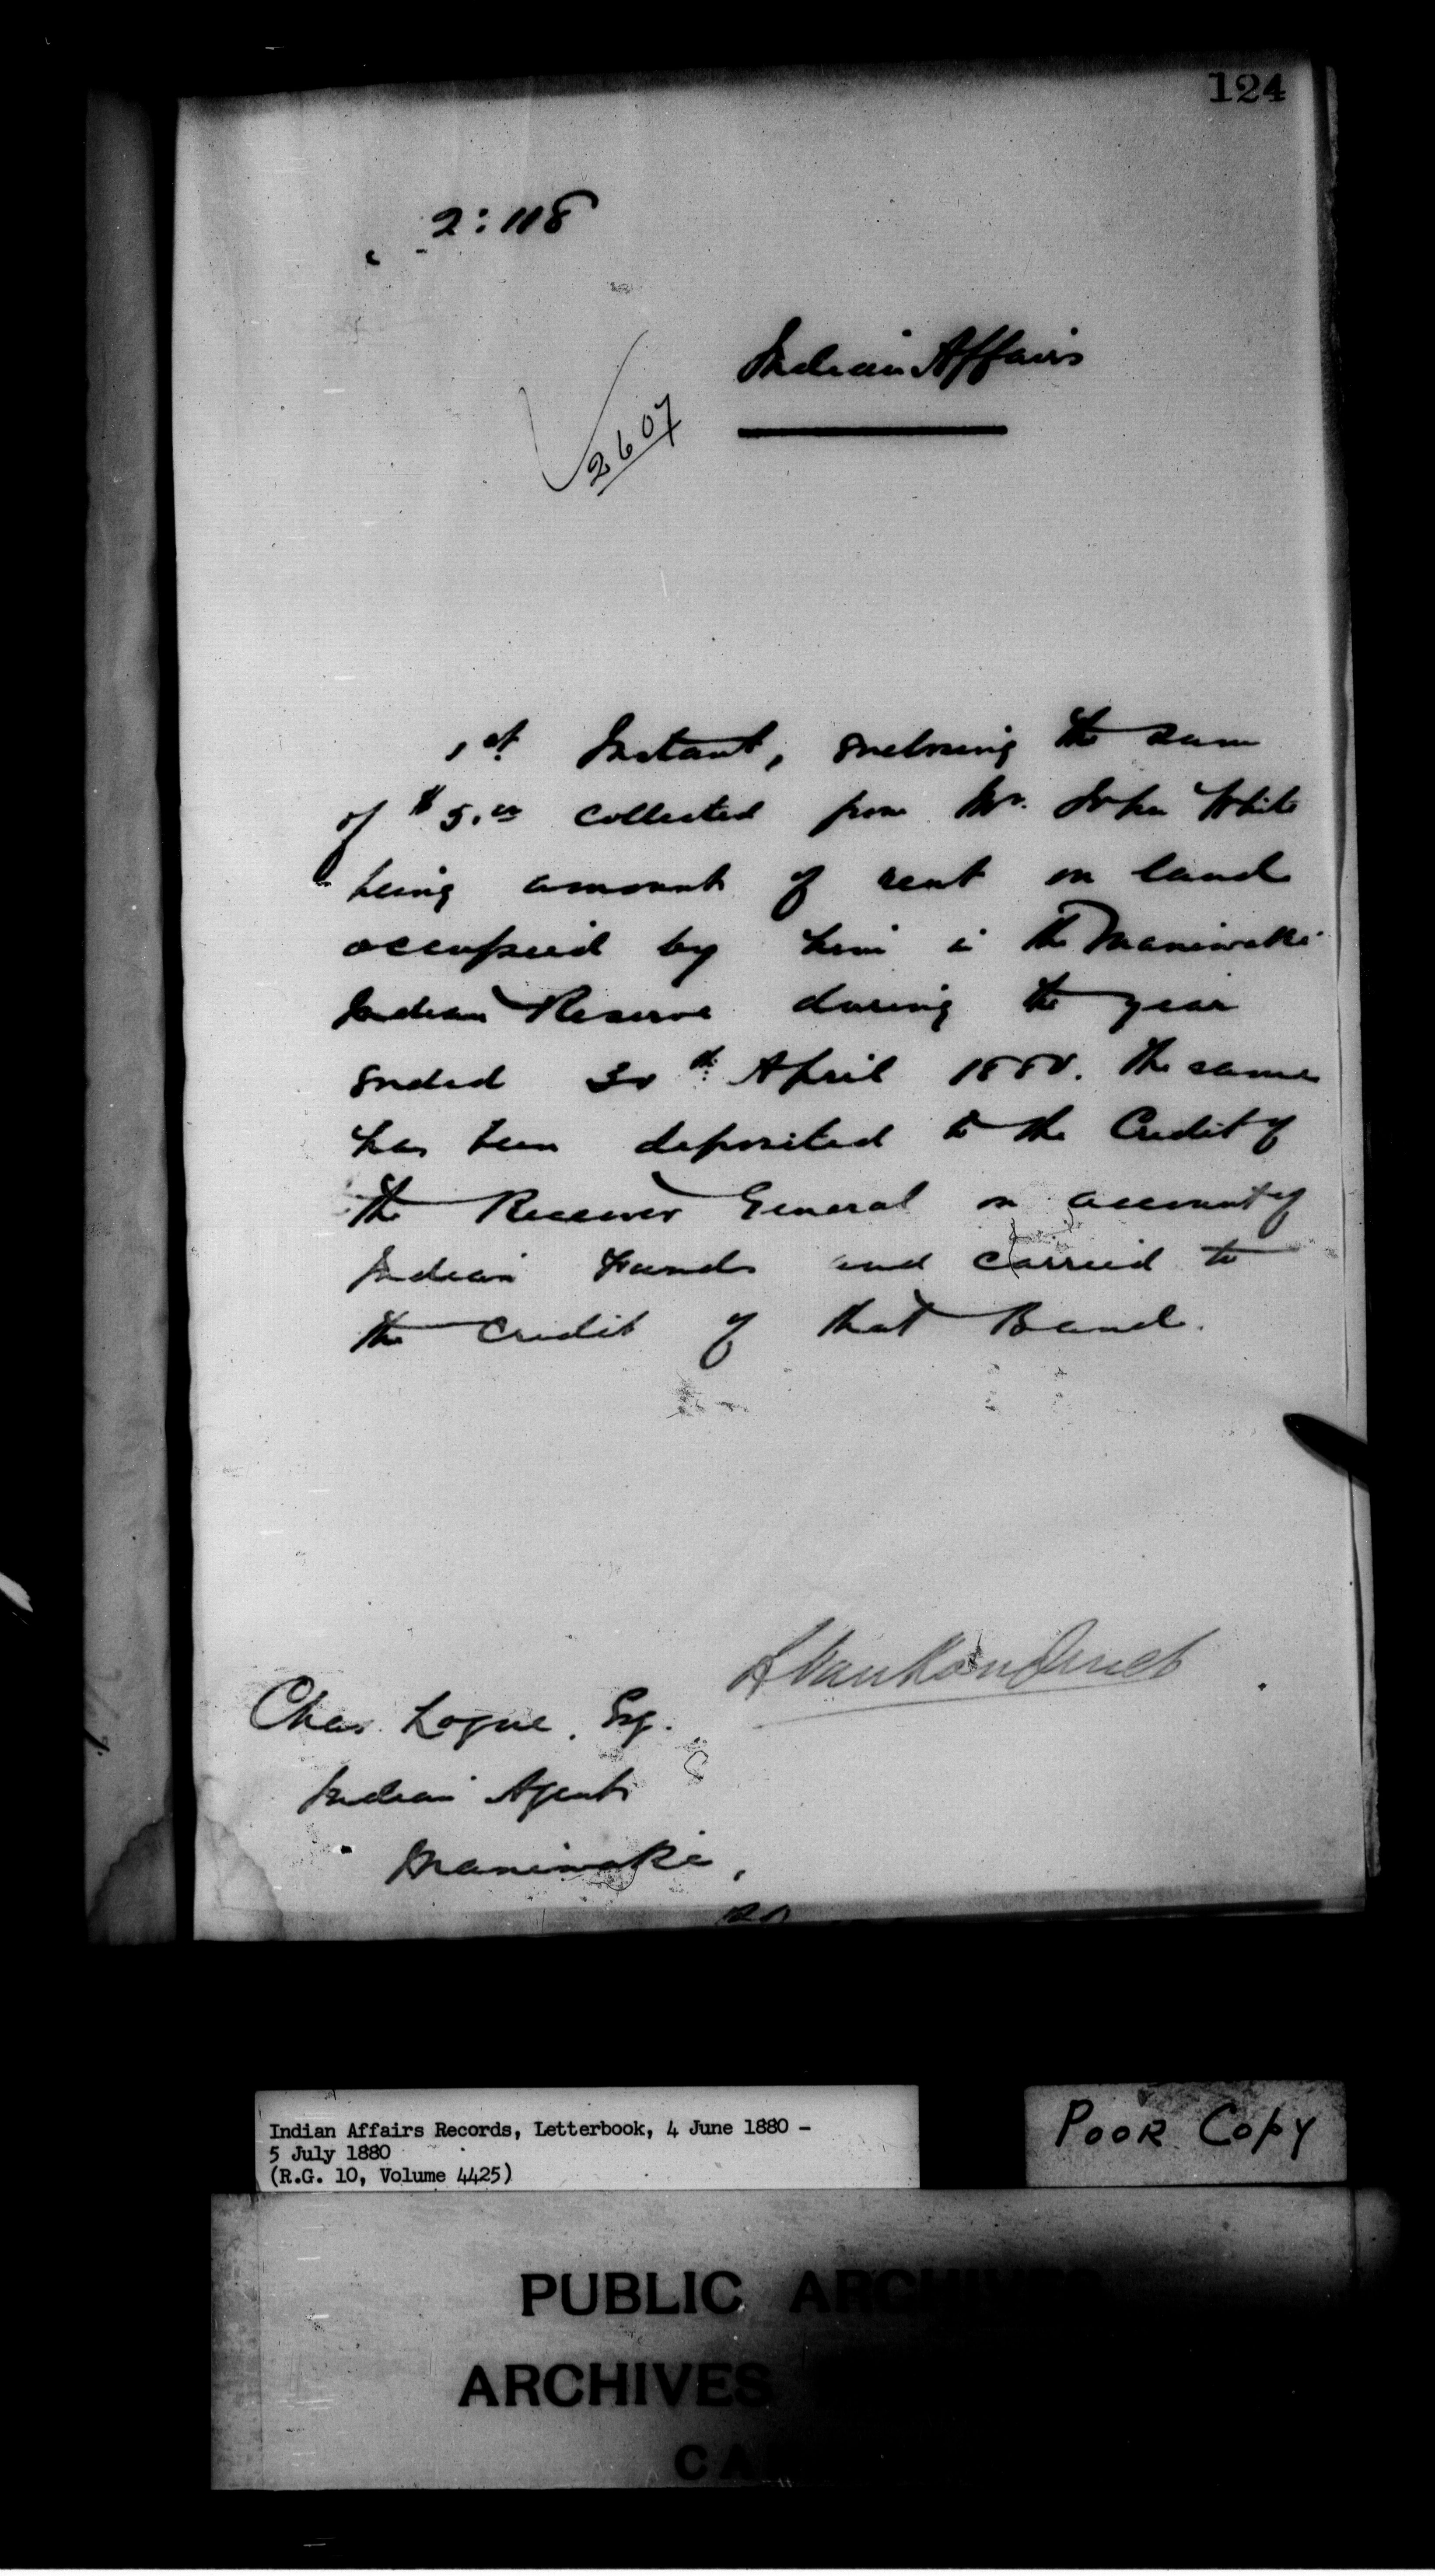 124
2:118
Indian Affairs
2607
1st Instant, enclosing the sum
of $5.00 collected from Mr. John White
being amount of rent on land
occupied by him in the Maniwaki
Indian Reserve during the year
ended 30th April 1880. The same
has been deposited to the Credit of
the Receiver General on account of
Indian Funds and carried to
the credit of that Band.
L VanKoughnet
Chas. Logue. Esq.
Indian Agent
Maniwaki,
Indian Affairs Records, Letterbook, 4 June 1880 -
5 July 1880
(R.G. 10, Volume 4425)
POOR COPY
PUBLIC ARCHIVES
ARCHIVES
CA